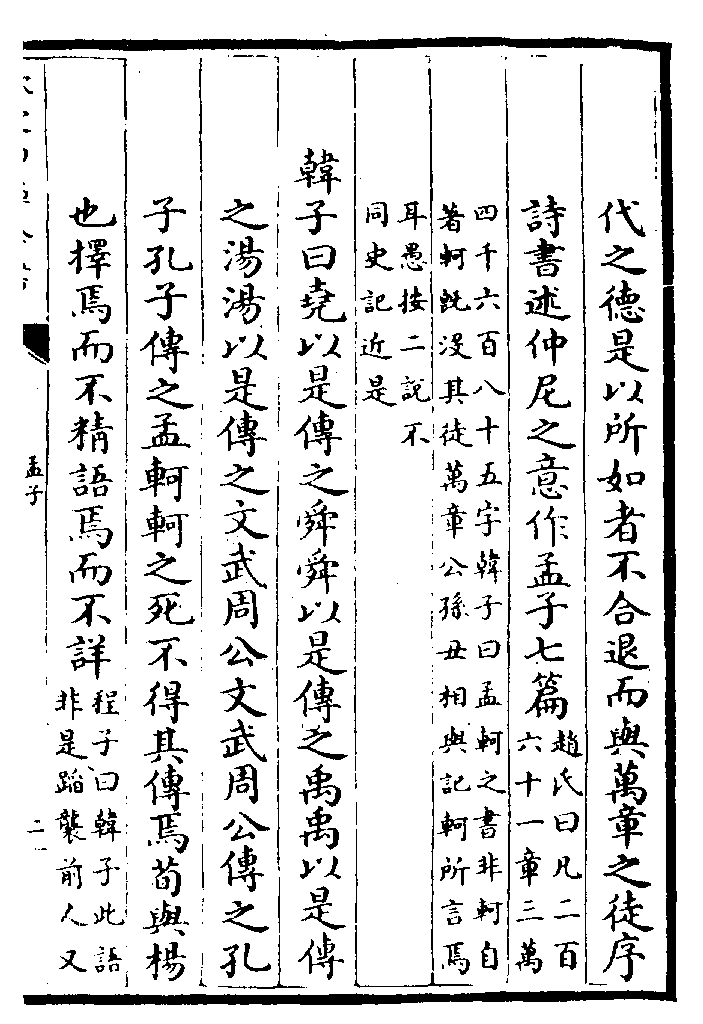 代之德是以所如者不合退而與萬章之徒序
詩書述仲尼之意作孟子七篇趙氏曰凡二百
六十一章三萬
四千六百八十五字韓子曰孟軻之書非軻自
著軻旣沒其徒萬章公孫丑相與記軻所言焉
耳愚按二說不
同史記近是
韓子曰堯以是傳之舜舜以是傳之禹禹以是傳
之湯湯以是傳之文武周公文武周公傳之孔
子孔子傳之孟軻軻之死不得其傳焉荀與楊
也擇焉而不精語焉而不詳程子曰韓子此語
非是蹈襲前人又
孟子
二